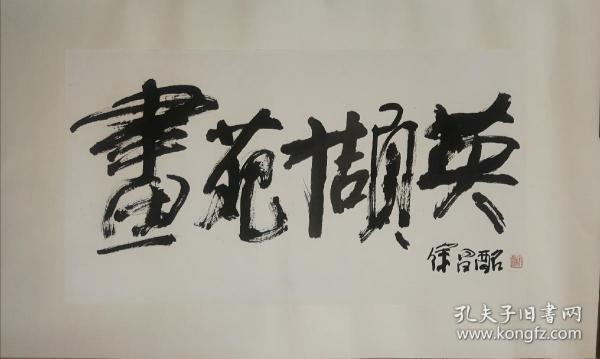 畫苑擷英
徐昌酩
孔夫子旧书网
www.kongfz.com